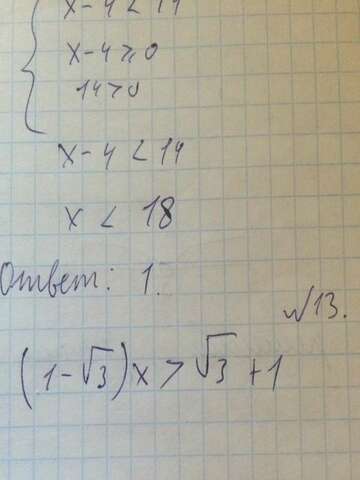 x-4<14
x-4⩾0
14>0
x-4<14
x<18
Ответ: 1.
№13.
(1-√3)x>√3+1